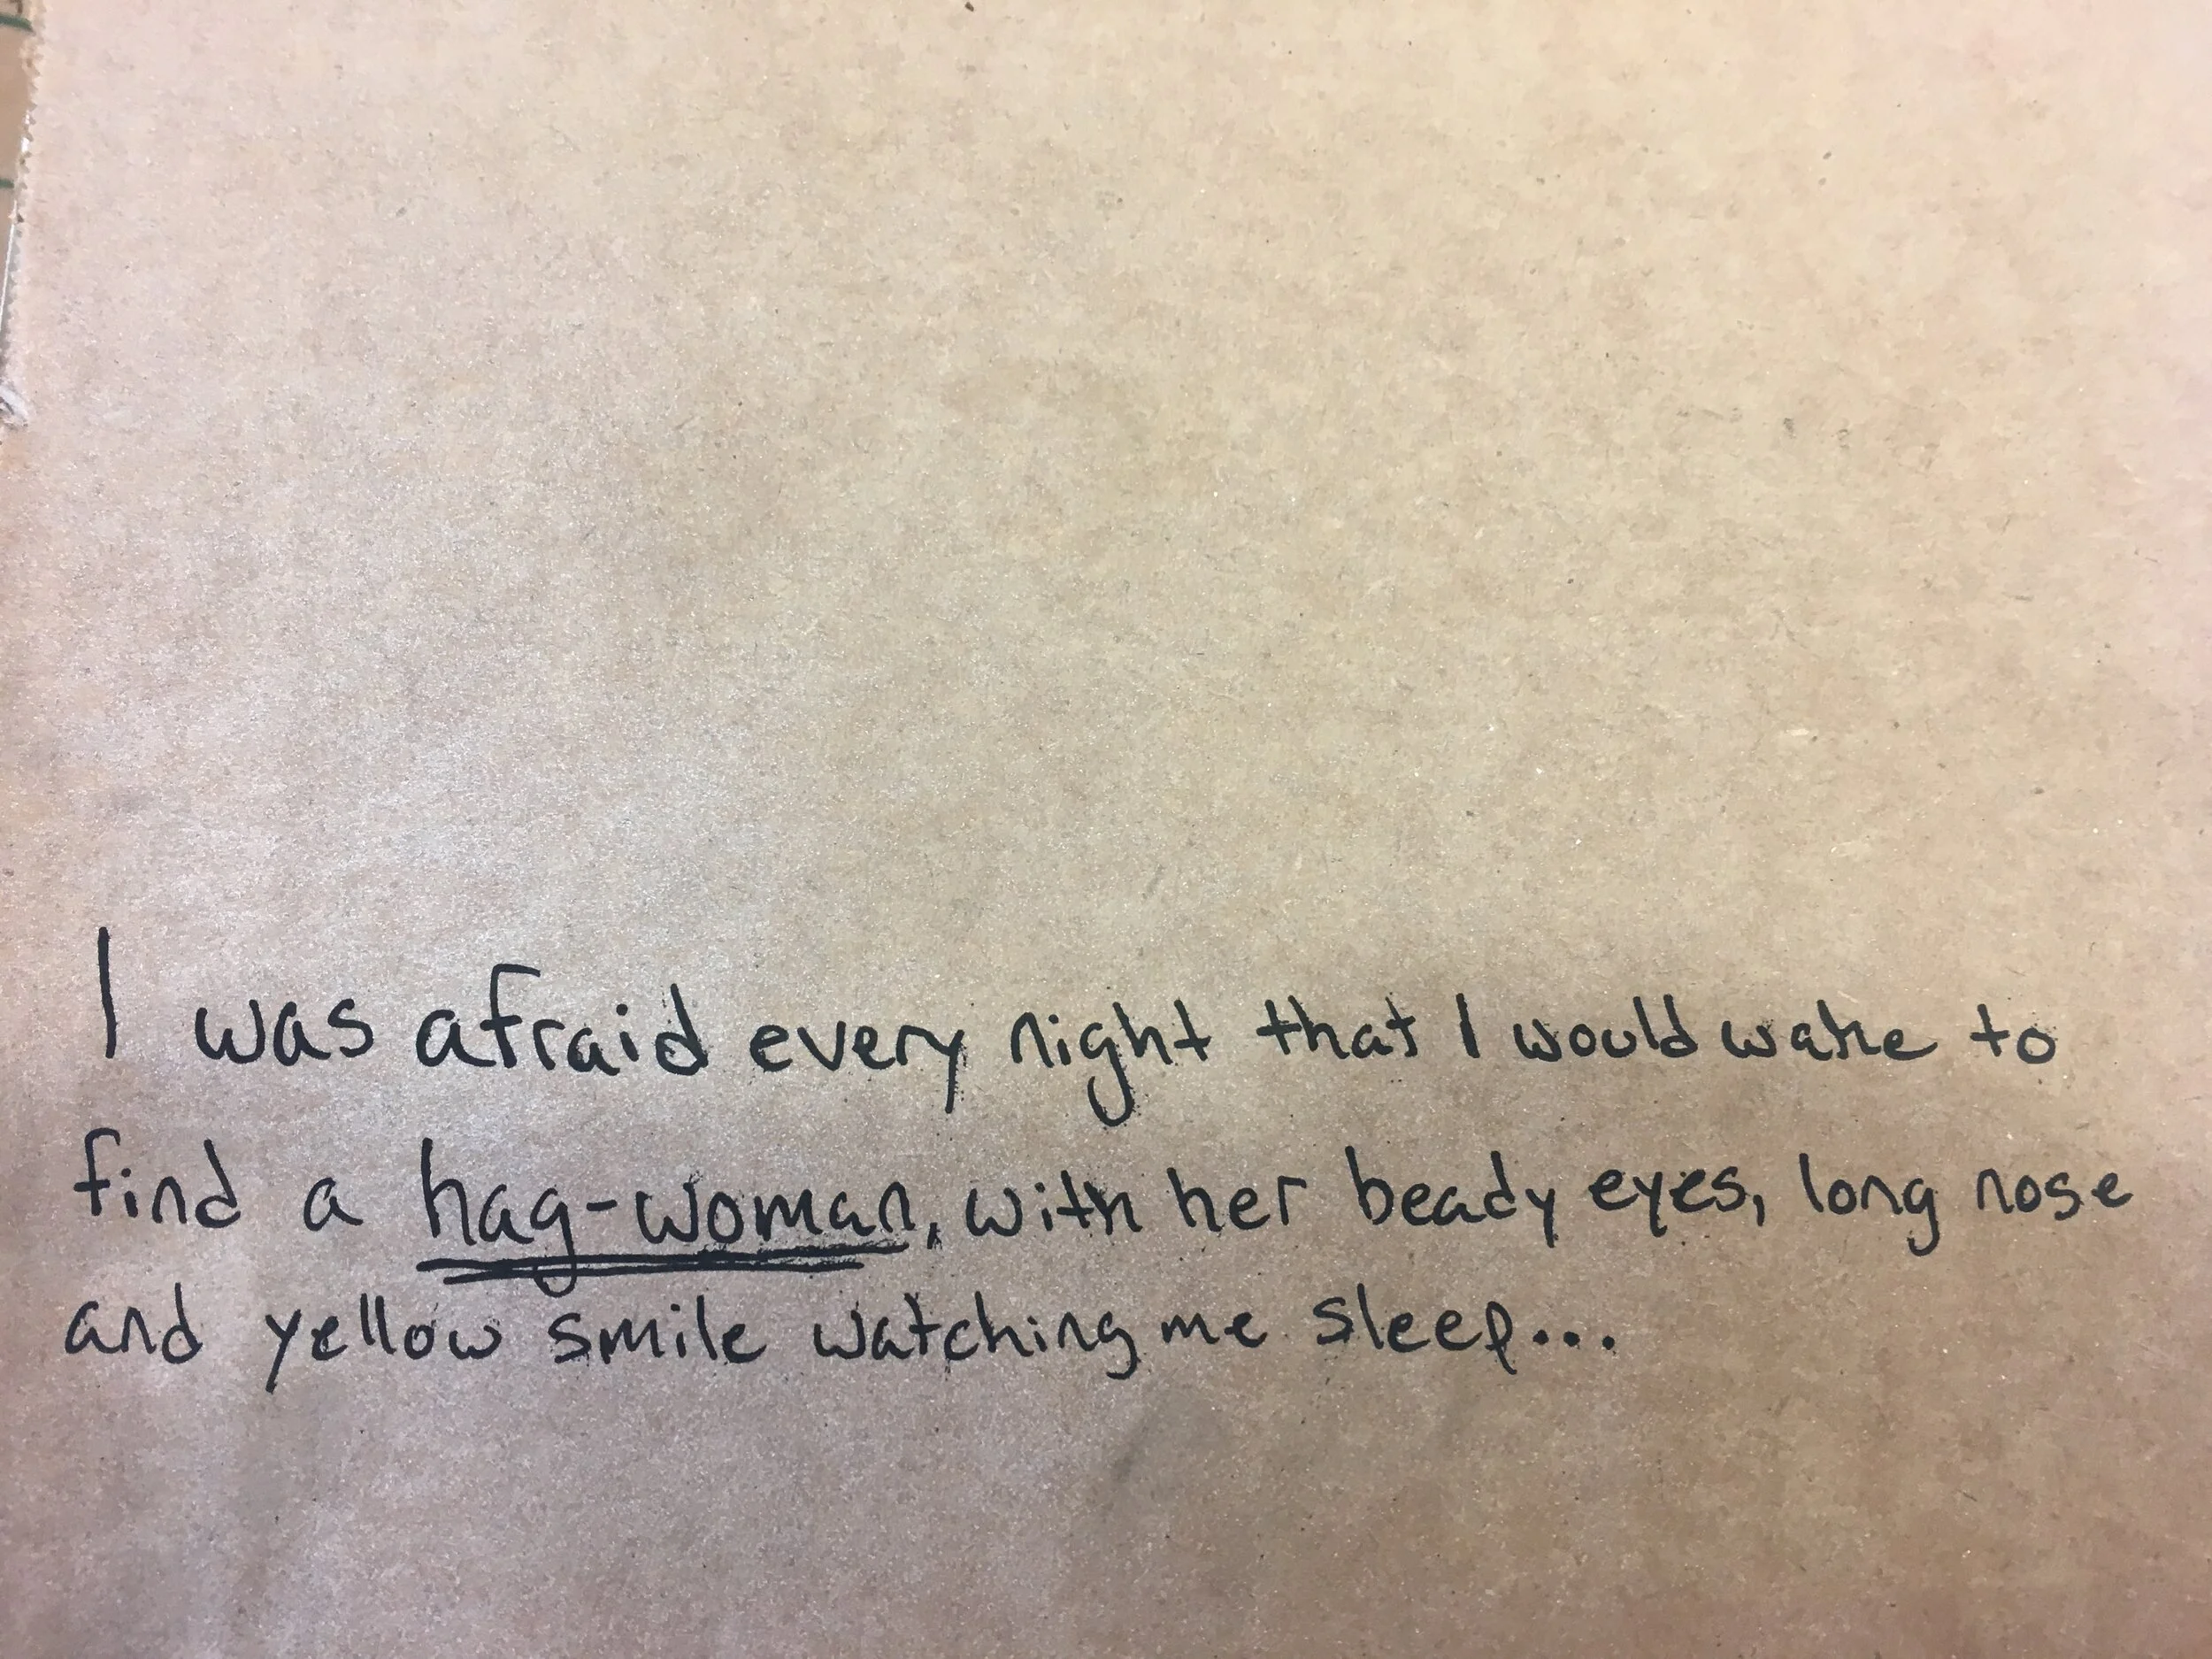 I was afraid every night that I would wake to
find a hag-woman, with her beady eyes, long nose
and yellow smile watching me sleep...